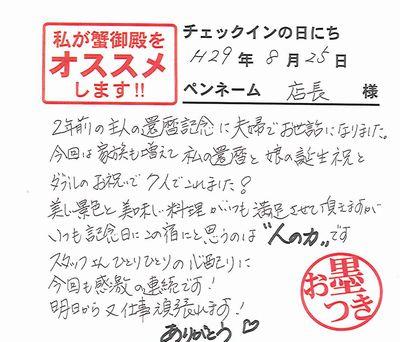 私が蟹御殿を
オススメ
します!!
チェックインの日にち
H29年 8月 25日
ペンネーム 店長 様
2年前の主人の還暦記念に夫婦でお世話になりました。
今回は家族も増えて私の還暦と娘の誕生祝と
ダブルのお祝いで7人でこれました?
美しい景色と美味しい料理がいつも満足させて頂えますが
いつも記念日にこの宿にと思うのは"人の力"です
スタッフさんひとりひとりの心配りに
今回も感激の連続です!
明日から又仕事頑張れます!
ありがとう♡
お墨つき